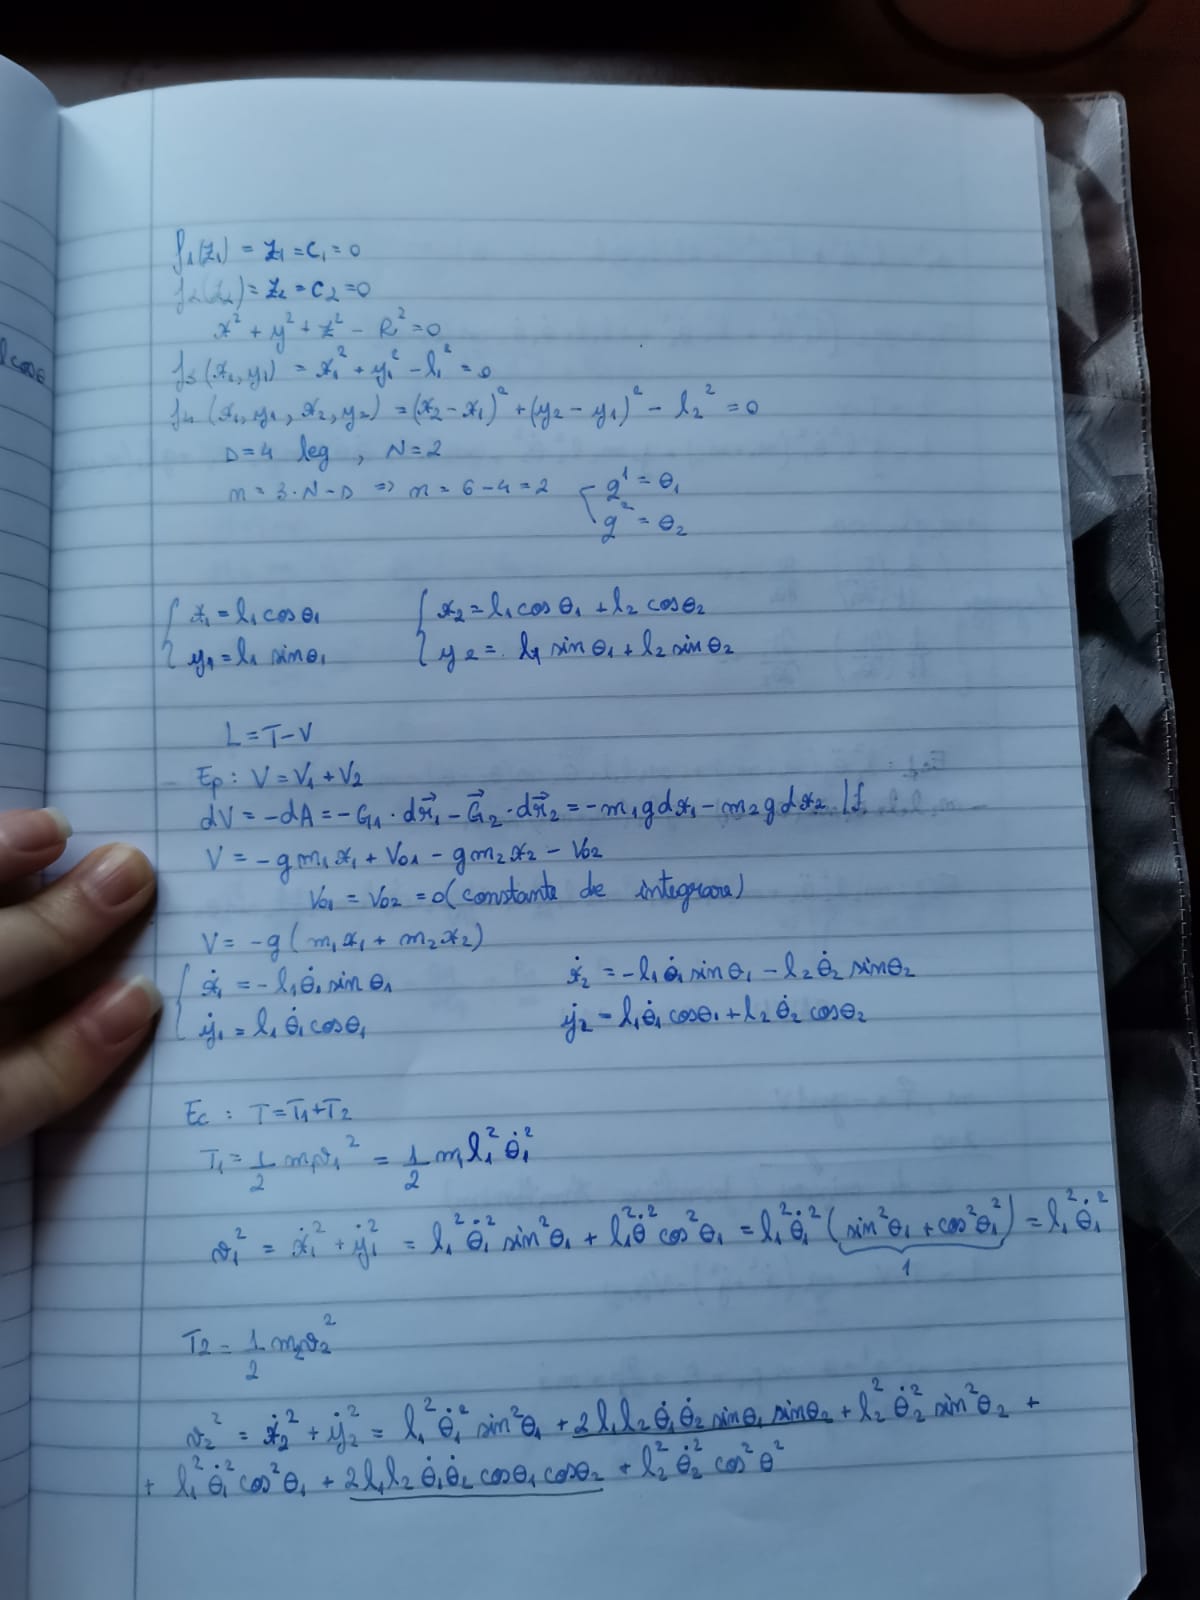 f₁(z₁) = z₁ = C₁ = 0
f₂(z₂) = z₂ = C₂ = 0
x² + y² + z² - R² = 0
f₃(x₁, y₁) = x₁² + y₁² - l₁² = 0
f₄(x₁, y₁, x₂, y₂) = (x₂ - x₁)² + (y₂ - y₁)² - l₂² = 0
D = 4 leg, N = 2
n = 3·N - D => n = 6 - 4 = 2 { q¹ = θ₁
q² = θ₂
{ x₁ = l₁ cosθ₁ { x₂ = l₁ cosθ₁ + l₂ cosθ₂
y₁ = l₁ sinθ₁ y₂ = l₁ sinθ₁ + l₂ sinθ₂
L = T - V
Ep: V = V₁ + V₂
dV = -dA = -G₁·dr⃗₁ - G⃗₂·dr⃗₂ = -m₁gdx₁ - m₂gdx₂ |∫
V = -gm₁x₁ + V₀₁ - gm₂x₂ - V₀₂
V₀₁ = V₀₂ = 0 (constante de integrare)
V = -g(m₁x₁ + m₂x₂)
{ ẋ₁ = -l₁θ̇₁ sinθ₁ ẋ₂ = -l₁θ̇₁ sinθ₁ - l₂θ̇₂ sinθ₂
ẏ₁ = l₁θ̇₁ cosθ₁ ẏ₂ = l₁θ̇₁ cosθ₁ + l₂θ̇₂ cosθ₂
Ec: T = T₁ + T₂
T₁ = 1/2 m₁v₁² = 1/2 m₁l₁²θ̇₁²
v₁² = ẋ₁² + ẏ₁² = l₁²θ̇₁² sin²θ₁ + l₁²θ̇² cos²θ₁ = l₁²θ̇₁² (sin²θ₁ + cos²θ₁) = l₁²θ̇₁²
1
T₂ = 1/2 m₂v₂²
v₂² = ẋ₂² + ẏ₂² = l₁²θ̇₁² sin²θ₁ + 2l₁l₂θ̇₁θ̇₂ sinθ₁ sinθ₂ + l₂²θ̇₂² sin²θ₂ +
+ l₁²θ̇₁² cos²θ₁ + 2l₁l₂θ̇₁θ̇₂ cosθ₁ cosθ₂ + l₂²θ̇₂² cos²θ²